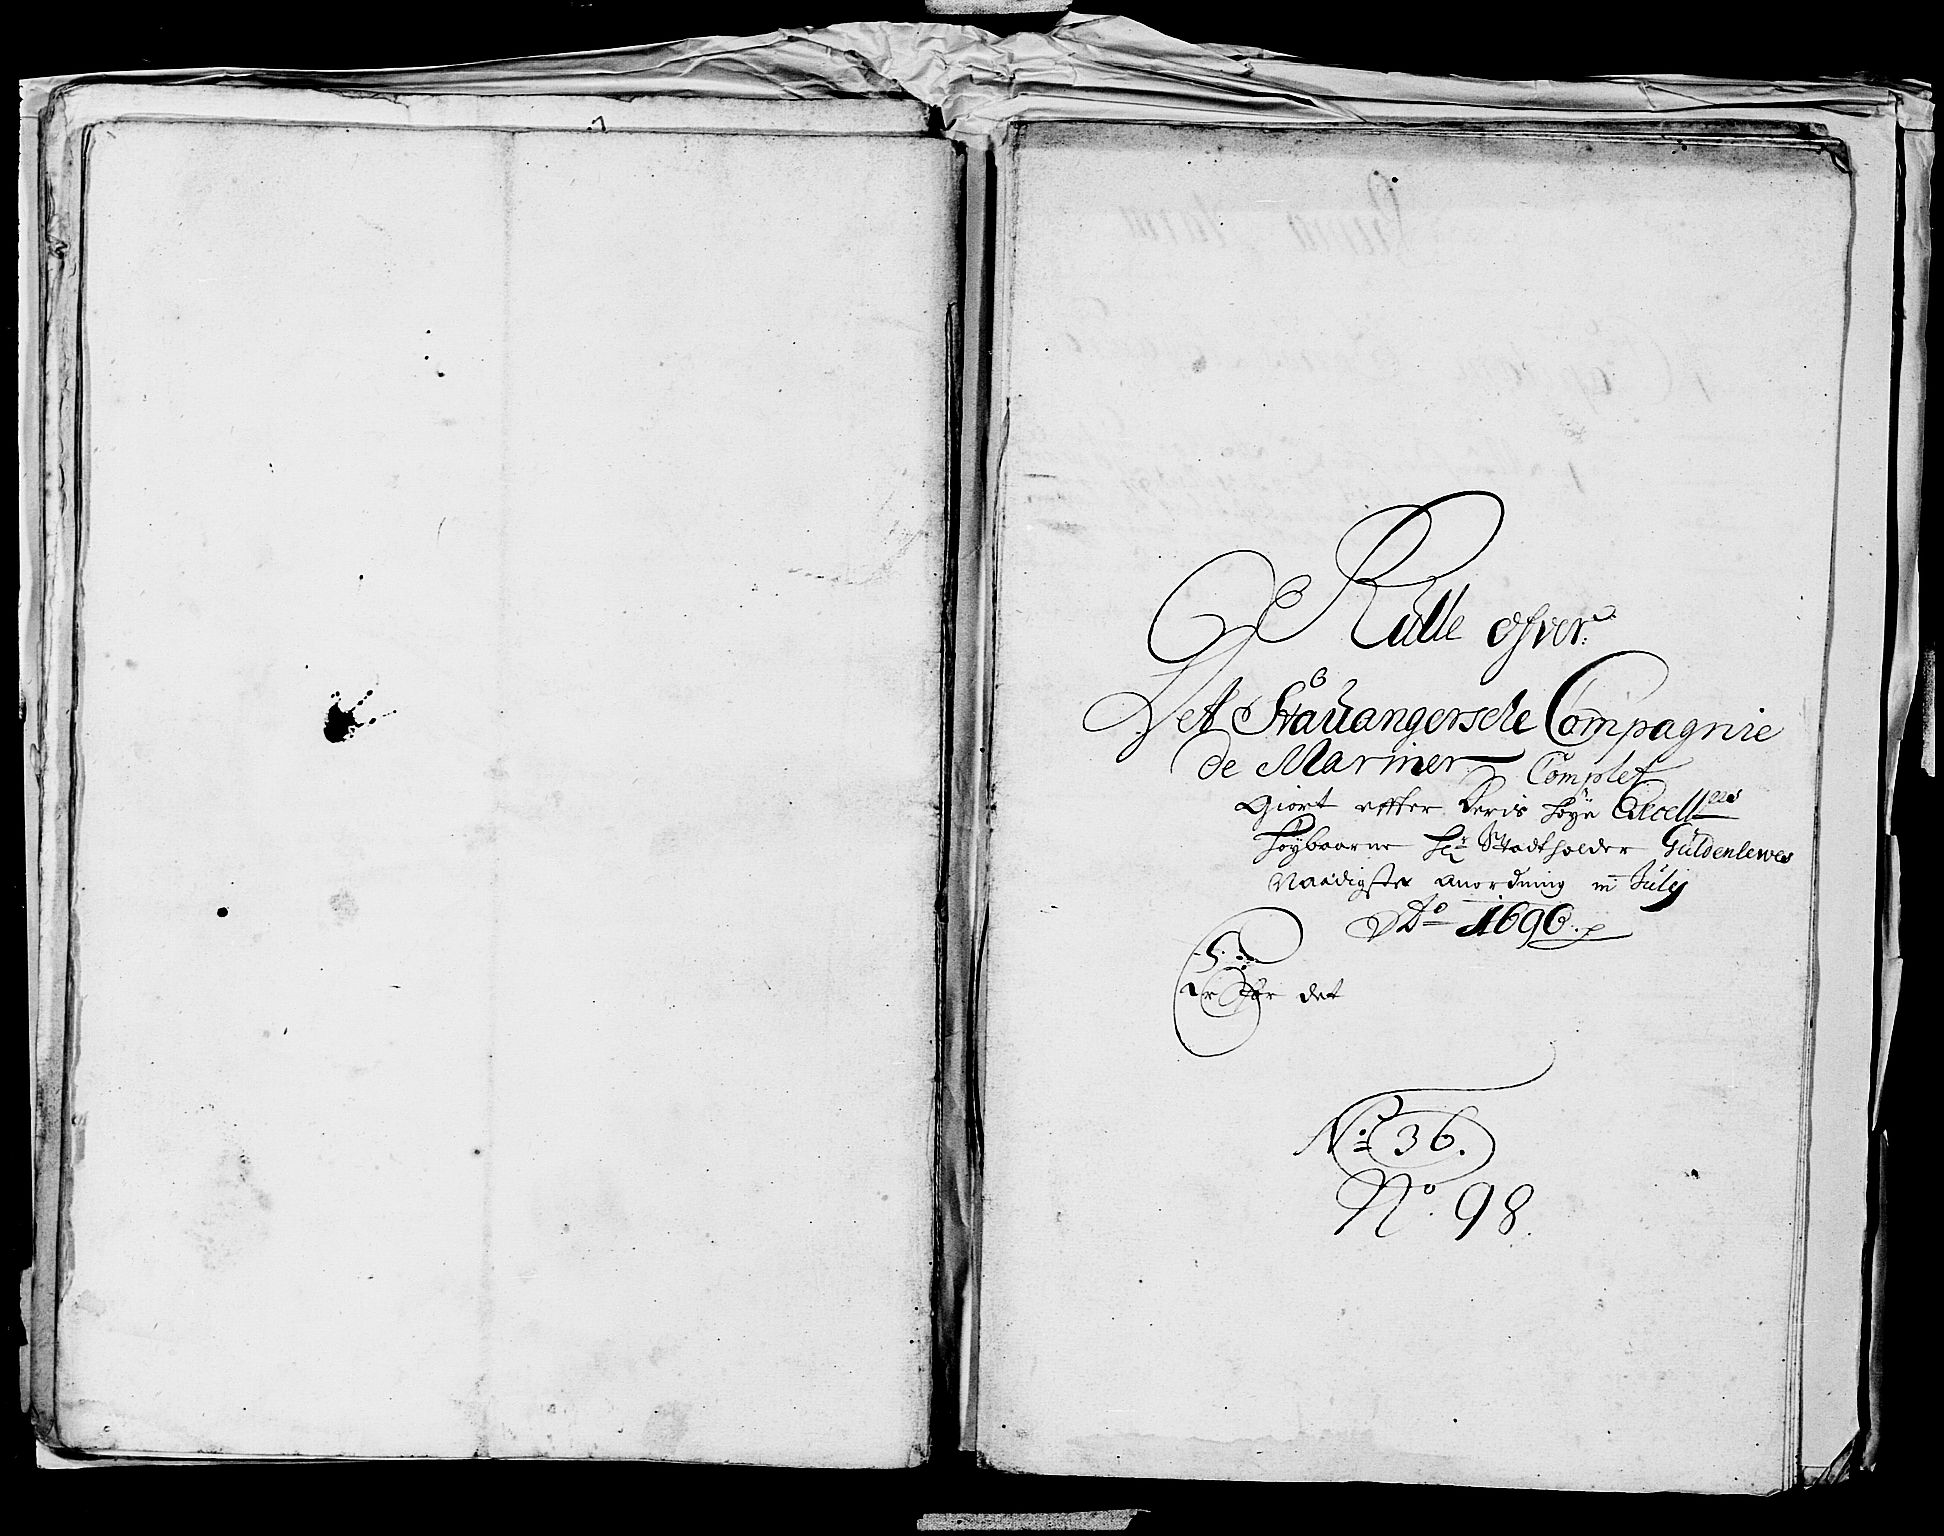 Rulle ofver
Det Stauangersche Compagnie
de Mariner Complet
Giort effter Deris Høye Excell
Høybaarne Hr Stadtholder Güldenlewes
Naadigste Anordning in July
Ao 1696.
for det
No 36.
No. 98.